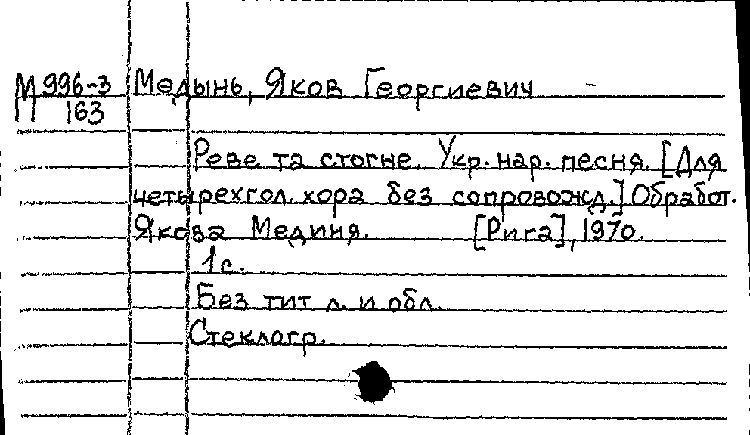 М 996-3 Медынь, Яков Георгиевич
163
Реве та стогне. Укр. нар. песня. [Для
четырехгол. хора без сопровожд.] Обработ.
Якова Мединя. [Рига], 1970.
1 с.
Без тит л. и обл.
Стеклогр.